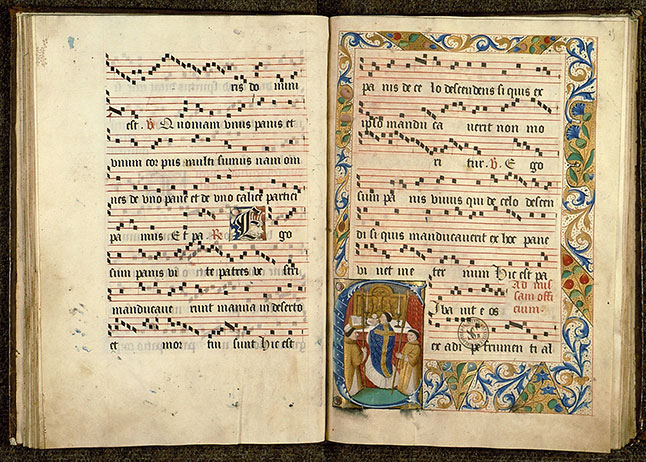 ris do mini
est. V. Quoniam vnus panis et
vnum cor pus multi sumus nam om
nes de vno pane et de vno calice partici
pa mus Et pa R. E go
sum panis vi te patres ve stri
manducaue runt manna in deserto
et mor tui sunt Hic est
pa nis de ce lo descendens si quis ex
ipso mandu ca uerit non mo
ri tur. V. E go
sum pa nis viuus qui de celo descen
di si quis manducauerit ex hoc pane
vi uet in e ter num Hic est pa
Ad mis
sam offi
cium.
C iba uit e os
ex adi pe frumen ti al